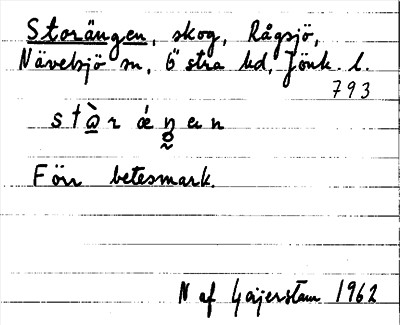 Storängen, skog, Rågsjö,
Nävelsjö sn, Östra hd, Jönk. l.
793
s t ὰ r ǽ ŋ en
Förr betesmark.
N af Geijerstam 1962